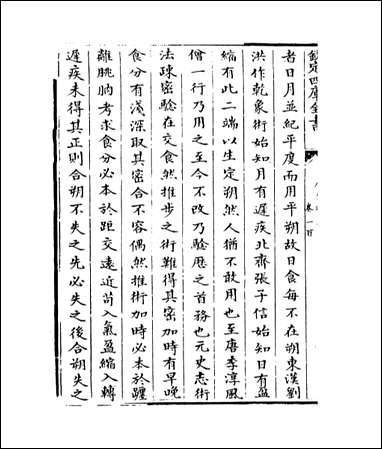 欽定四庫全書
者日月並紀平度而用平朔故日食每不在朔東漢劉
洪作乾象術始知月有遲疾北齊張子信始知日有盈
縮有此二端以生定朔然人猶不敢用也至唐李淳風
僧一行乃用之至今不改乃驗厯之首務也元史志術
法疎密驗在交食然推步之術難得其密加時有早晚
食分有淺深取其密合不容偶然推術加時必本於躔
離朓朒考求食分必本於距交逺近苟入氣盈縮入轉
遲疾未得其正則合朔不失之先必失之後合朔失之